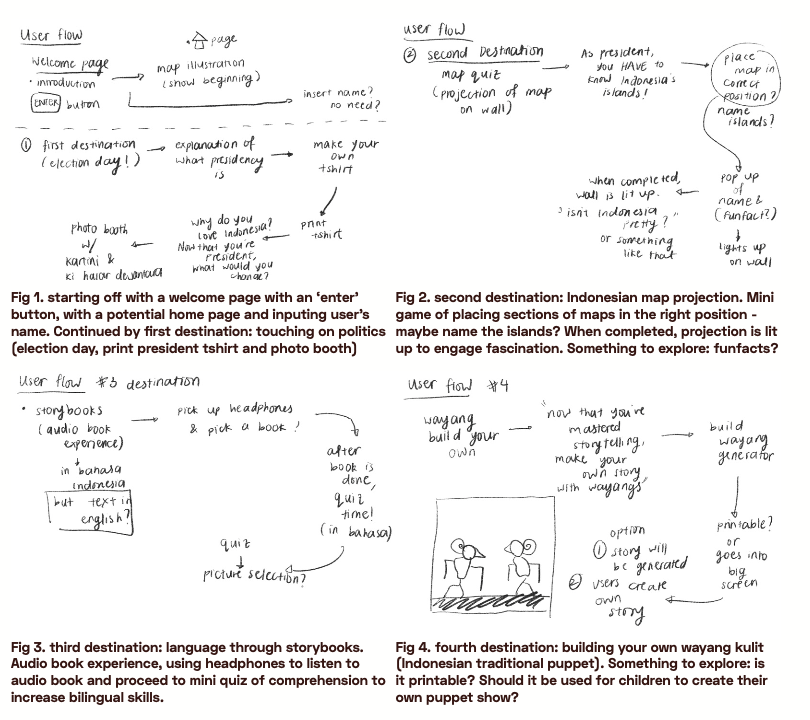 User flow
Welcome page
• inroduction
ENTER button
page
map illustration
(show beginning)
insert name?
no need?
① first destination
(election day!)
explanation of
what presidency
is
make your
own
tshirt
print
tshirt
Why do you
love Indonesia?
Now that you're
president,
what would you
change?
photo booth
w/
kartini &
ki hajar dewantara
Fig 1. starting off with a welcome page with an ‘enter’
button, with a potential home page and inputing user’s
name. Continued by first destination: touching on politics
(election day, print president tshirt and photo booth)
user flow
② second Destination
map quiz
(projection of map
on wall)
As president,
you HAVE to
know Indonesia's
islands!
place
map in
correct
position?
name
islands?
pop up
of
name &
(funfact?)
lights up
on wall
when completed,
wall is lit up.
"isn't Indonesia
pretty?"
or something
like that
Fig 2. second destination: Indonesian map projection. Mini
game of placing sections of maps in the right position -
maybe name the islands? When completed, projection is lit
up to engage fascination. Something to explore: funfacts?
User flow #3 destination
• storybooks
(audio book
experience)
in bahasa
indonesia
but text in
english?
pick up headphones
& pick a book!
after
book is
done,
quiz
time!
(in bahasa)
quiz
picture selection?
Fig 3. third destination: language through storybooks.
Audio book experience, using headphones to listen to
audio book and proceed to mini quiz of comprehension to
increase bilingual skills.
User flow #4
wayang
build your
own
"now that you've
mastered
storytelling,
make your
own story
with wayangs"
build
wayang
generator
printable?
or
goes into
big
screen
option
① story will
be generated
② users create
own
story
Fig 4. fourth destination: building your own wayang kulit
(Indonesian traditional puppet). Something to explore: is
it printable? Should it be used for children to create their
own puppet show?